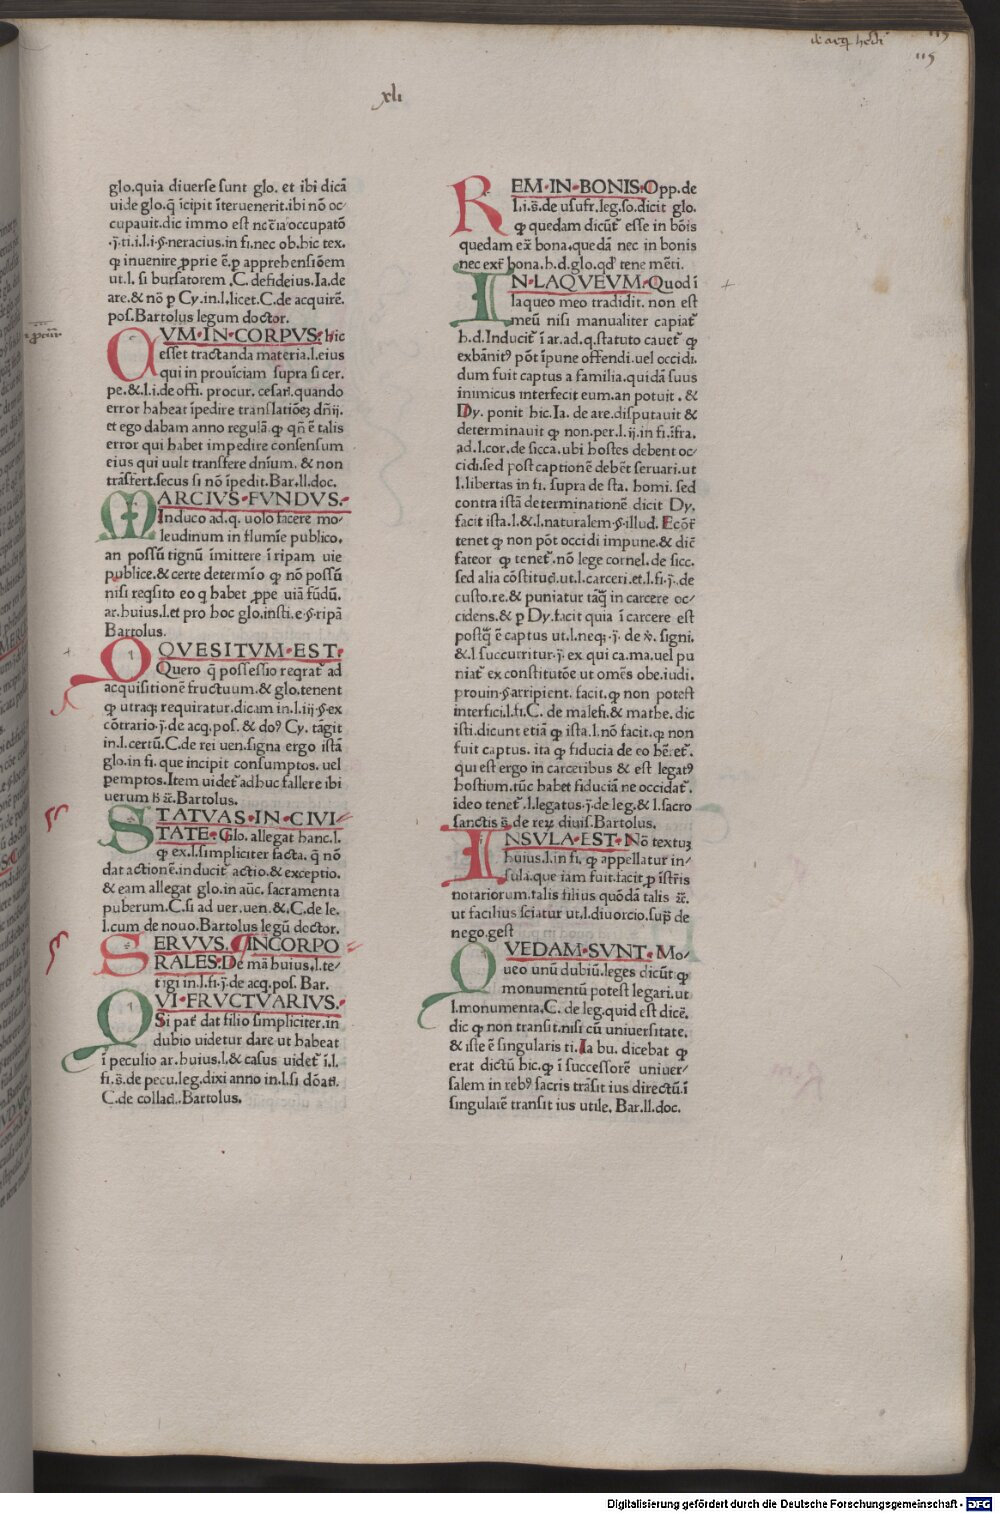 xli
115
glo.quia diuerse sunt glo. et ibi dicā
uide glo.q̄ īcipit īteruenerit.ibi nō oc-
cupauit.dic immo est nēcīa occupatō
.j̄.ti.i.l.i.§.neracius.in fi.nec ob.hic tex.
ꝙ inuenire ꝓprie ē.ꝑ apprehensiōem
ut.l. si bursatorem .C. defideius.Ia.de
are.& nō ꝑ Cy.in.l.licet.C.de acquirē.
pos.Bartolus legum doctor.
VM·IN·CORPVS· hic
esset tractanda materia.l.eius
qui in prouīciam supra si cer.
pe.&.l.i.de offi. procur. cesar̄.quando
error habeat īpedire translatiōeꝫ dn̄ij.
et ego dabam anno regulā.ꝙ qn̄ ē talis
error qui habet impedire consensum
eius qui uult transfere dnīum. & non
trāsfert.secus si nō īpedit.Bar.ll.doc.
MARCIVS·FVNDVS.
Induco ad.q. uolo facere mo-
leudinum in flumīe publico.
an possū tignū īmittere ī ripam uie
publice.& certe determīo ꝙ nō possū
nisi reqsito eo q habet ꝓpe uiā fūdū.
ar.huius.l.et pro hoc glo.insti.e.§.ripā
Bartolus.
QVESITVM·EST·
Quero q̄ possessio reqrat̄ ad
acquisitionē fructuum.& glo.tenent
ꝙ utraqꝫ requiratur.dicam in.l.iij.§.ex
cōtrario.j̄.de acq.pos. & doꝰ Cy. tāgit
in.l.certū.C.de rei uen.signa ergo istā
glo.in fi. que incipit consumptos. uel
ꝑemptos.Item uidet̄ adhuc fallere ibi
uerum
STATVAS·IN·CIVI
TATE· Glo. allegat hanc.l.
ꝙ ex.l.simpliciter facta. q̄ nō
dat actionē.inducit̄ actio.& exceptio.
& eam allegat glo.in aūc. sacramenta
puberum.C.si ad uer.uen.&.C.de le.
l.cum de nouo.Bartolus legū doctor.
SERVVS. INCORPO
RALES·De mā huius.l.te-
tigi in.l.fi.j̄.de acq.pos. Bar.
QVI·FRVCTVARIVS.
Si pat̄ dat filio simpliciter.in
dubio uidetur dare ut habeat
ī peculio ar.huius.l.& casus uidet̄ ī.l.
fi.s̄.de pecu.leg.dixi anno in.l.si dōati.
C.de collac̄.Bartolus.
REM·IN·BONIS·Opp.de
l.i.s̄.de usufr.leg.so.dicit glo.
ꝙ quedam dicūt̄ esse in bōis
quedam ex̄ bona.quedā nec in bonis
nec ext̄ bona.h.d.glo.qd̄ tene mēti.
IN·LAQVEVM·Quod ī
laqueo meo tradidit. non est
meū nisi manualiter capiat̄
h.d.Inducit̄ ī ar.ad.q.statuto cauet̄ ꝙ
exbānitꝰ pōt īpune offendi.uel occidi.
dum fuit captus a familia.quidā suus
inimicus interfecit eum.an potuit . &
Dy. ponit hic.Ia. de are.disputauit &
determinauit ꝙ non.per.l.ij.in fi.īfra.
ad.l.cor.de sicca.ubi hostes debent oc-
cidi.sed post captionē debēt seruari.ut
l.libertas in fi. supra de sta. homi. sed
contra istā determinationē dicit Dy.
facit ista.l.&.l.naturalem.§.illud. Ecōt̄
tenet ꝙ non pōt occidi impune.& dic̄
fateor ꝙ tenet̄.nō lege cornel.de sicc.
sed alia cōstituc̄.ut.l.carceri.et.l.fi.j̄.de
custo.re.& puniatur tāꝙ in carcere oc-
cidens.& ꝑ Dy.facit quia ī carcere est
postꝙ̄ ē captus ut.l.neqꝫ.j̄. de signi.
&.l succurritur.j̄.ex qui ca.ma.uel pu
niat̄ ex constitutōe ut omēs obe.iudi.
prouin.§.arripient. facit.ꝙ non potest
interfici.l.fi.C. de malefi.& mathe. dic
isti.dicunt etiā ꝙ ista.l.nō facit.ꝙ non
fuit captus. ita ꝙ fiducia de eo hēret̄.
qui est ergo in carceribus & est legatꝰ
hostium.tūc habet fiduciā ne occidat̄.
ideo tenet̄ .l.legatus.j̄.de leg.& l.sacro
sanctis s̄.de reꝝ diuis.Bartolus.
INSVLA·EST·Nō textuꝫ
huius.l.in fi. ꝙ appellatur in-
sula.que iam fuit.facit ꝓ īstr̄is
notariorum.talis filius quōdā talis
ut facilius sciatur ut.l.diuorcio.supͣ de
nego.gest
QVEDAM·SVNT·Mo-
ueo unū dubiū.leges dicūt ꝙ
monumentū potest legari.ut
l.monumenta.C. de leg.quid est dicē.
dic ꝙ non transit.nisi cū uniuersitate.
& iste ē singularis ti.Ia bu. dicebat ꝙ
erat dictū hic.ꝙ ī successorē uniuer-
salem in rebꝰ sacris trāsit ius directū.ī
singularē transit ius utile. Bar.ll.doc.
Digitalisierung gefördert durch die Deutsche Forschungsgemeinschaft - DFG